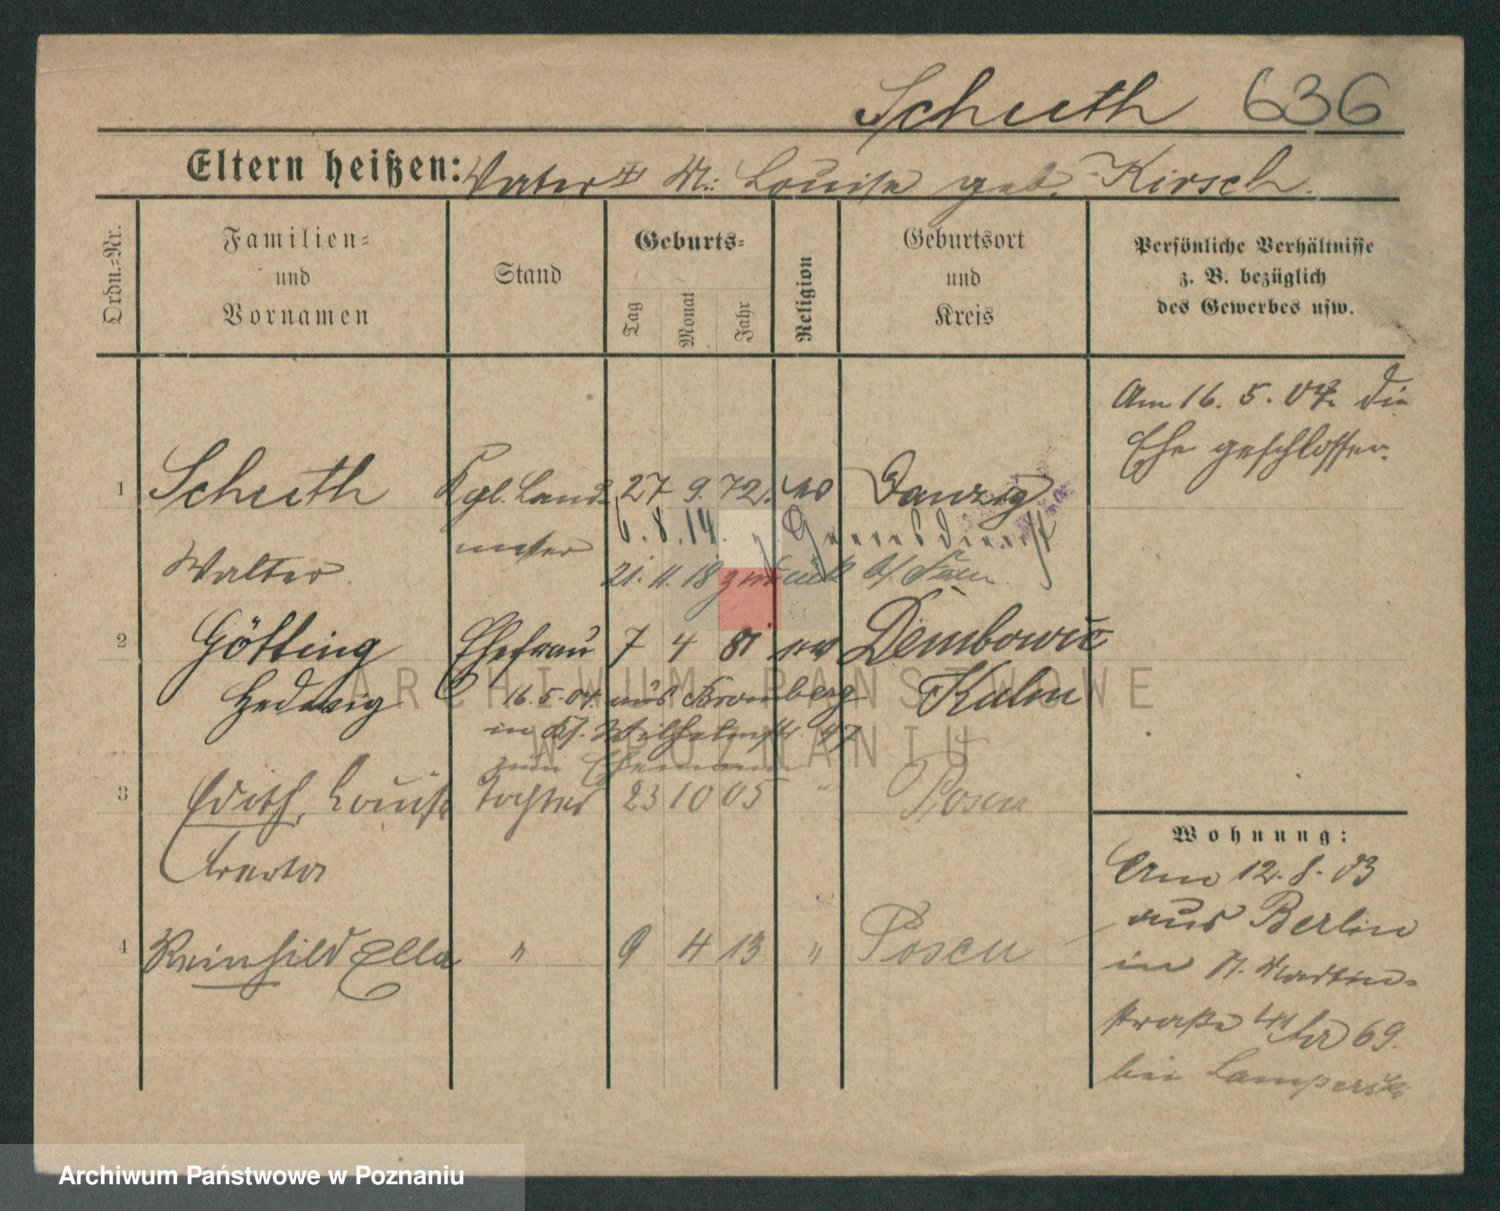 Scheeth 636
Eltern heißen: Vater ‡ M: Louise geb. Kirsch.
Ordn.-Nr.
Familien-
und
Vornamen
Stand
Geburts-
Tag
Monat
Jahr
Religion
Geburtsort
und
Kreis
Persönliche Verhältnisse
z. B. bezüglich
des Gewerbes usw.
Am 16. 5. 04 die
Ehe geschlossen.
1 Scheeth Kgl. Land- 27 9. 72. Danzig
6. 8. 14. z. Heeresdienst
messer
Walter 21. 11. 18 zurück
2 Götting Ehefrau 7 4 81 Dembowic
Hedwig 16. 5. 04. aus Bromberg Kulm
in Wilhelmstr. 47
zum Ehemann
3 Edith, Louise Tochter 23 10 05 " Posen
4 Reinhild Ella " 9 4 13 " Posen
Wohnung:
Am 12. 8. 03
aus Berlin
in St. Martin-
straße 69.
bei Lamperski
ARCHIWUM PAŃSTWOWE
W POZNANIU
Archiwum Państwowe w Poznaniu